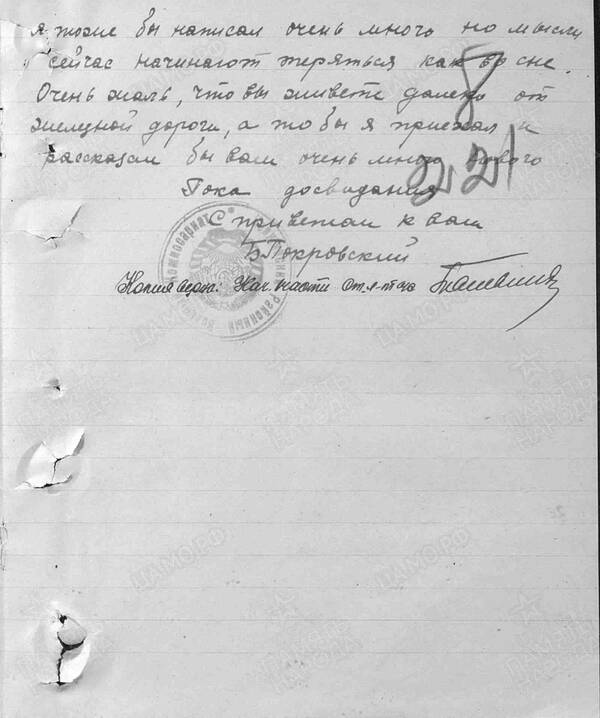 я тоже бы написал очень много но мысли
сейчас начинают теряться как во сне.
Очень жаль, что вы живете далеко от
железной дороги, а то бы я приехал и
рассказал бы вам очень много нового
8
221
Пока досвидания
С приветом к вам
Б Покровский
Копия верна: Нач. части ст. л-т а/с
Районный
ЦАМО.РФ
ПАМЯТЬ НАРОДА